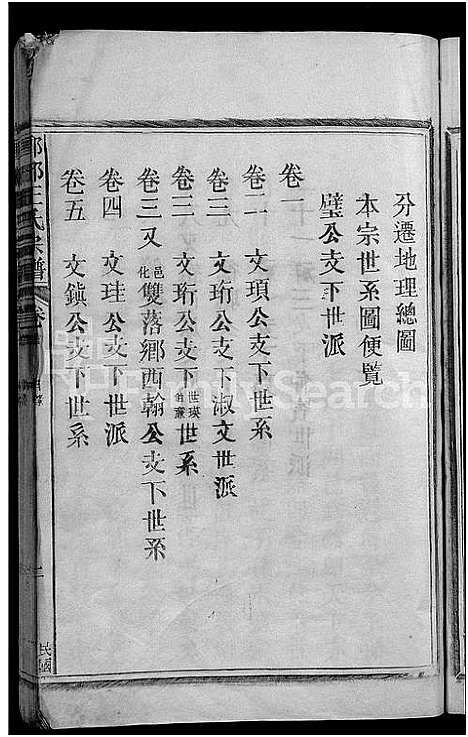 分遷地理總圖
本宗世系圖便覽
璧公支下世派
卷一
卷二 文頊公支下世系
卷三 文珩公支下淑文世派
卷三 文珩公支下世瑛世系
卷三又 化邑雙落鄉西翰公支下世系
卷四 文珪公支下世派
卷五 文鎮公支下世系
王氏宗譜 卷
FamilySearch